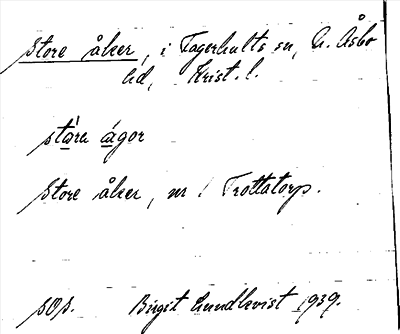 Store åker, i Fagerhults sn, N. Åsbo
hd, Krist. l.
stårn ågor
Store åker, nr i Trottatorp.
sOs. Birgit Lundkvist 1939.